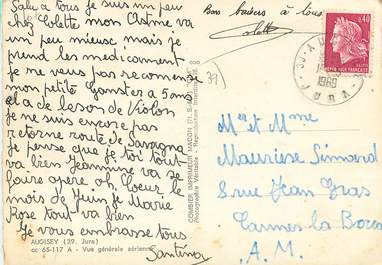 Salu a tous je suis un peu
chez Colette mon Asthme va
un peu mieuse mais je
prend les medicament
je ne veus pas recomensé
mon petite Gamster a 5 ans
el a de leson de Violon
je ne suis encore pas
retorné route de Savagna
je pense que je toi tout
va bien Jeannine va se
faire opere oh. Coeur le
mois de Juin je Marie
Rose tout va bien
Je vous embrasse tous
Santina
AUGISEY (39. Jura)
cc 65-117 A - Vue générale aérienne
COMBIER IMPRIMEUR MACON
Photographie Véritable - Reproduction Interdite
39
Bons baisers à tous
Colette
0,40
REPUBLIQUE FRANCAISE
1969
JURA
Mr et Mme
Maurise Simard
8 rue Jean Gras
Cannes la Bocca
A.M.